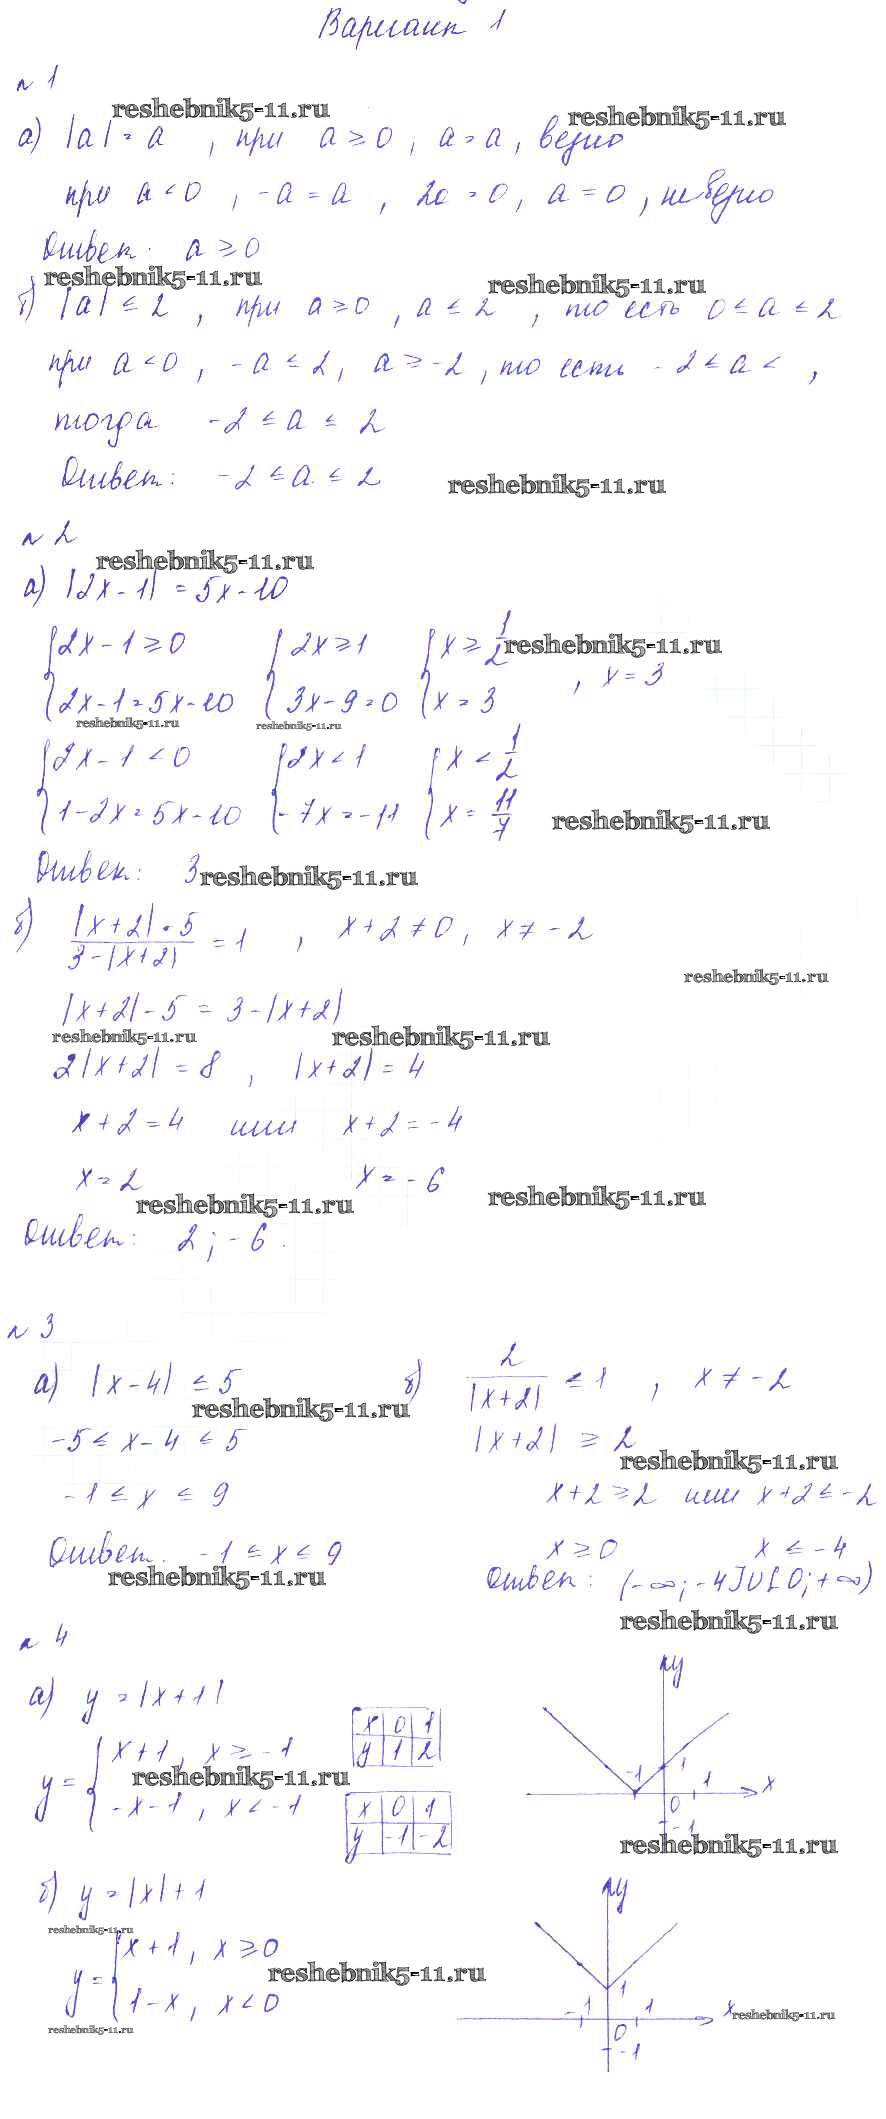 Вариант 1
№ 1
reshebnik5-11.ru reshebnik5-11.ru
а) |a| = a , при a ≥ 0, a = a, верно
при a < 0 , -a = a , 2a = 0, a = 0 , неверно
Ответ: a ≥ 0
reshebnik5-11.ru reshebnik5-11.ru
б) |a| ≤ 2 , при a ≥ 0 , a ≤ 2 , то есть 0 ≤ a ≤ 2
при a < 0 , -a ≤ 2, a ≥ -2 , то есть -2 ≤ a < ,
тогда -2 ≤ a ≤ 2
Ответ: -2 ≤ a ≤ 2 reshebnik5-11.ru
№ 2
reshebnik5-11.ru
а) |2x - 1| = 5x - 10
{2x - 1 ≥ 0 {2x ≥ 1 {x ≥ 1/2 reshebnik5-11.ru
{2x - 1 = 5x - 10 {3x - 9 = 0 {x = 3 , x = 3
reshebnik5-11.ru reshebnik5-11.ru
{2x - 1 < 0 {2x < 1 {x < 1/2
{1 - 2x = 5x - 10 {-7x = -11 {x = 11/7 reshebnik5-11.ru
Ответ: 3 reshebnik5-11.ru
б) |x+2| - 5 / 3 - |x+2| = 1 , x + 2 ≠ 0, x ≠ -2
reshebnik5-11.ru
|x+2| - 5 = 3 - |x+2|
reshebnik5-11.ru reshebnik5-11.ru
2|x+2| = 8 , |x+2| = 4
x + 2 = 4 или x + 2 = -4
x = 2 x = -6
reshebnik5-11.ru reshebnik5-11.ru
Ответ: 2 ; -6 .
№ 3
а) |x - 4| ≤ 5
reshebnik5-11.ru
-5 ≤ x - 4 ≤ 5
-1 ≤ x ≤ 9
Ответ: -1 ≤ x ≤ 9
reshebnik5-11.ru
б) 2 / |x+2| ≤ 1 , x ≠ -2
|x+2| ≥ 2
reshebnik5-11.ru
x + 2 ≥ 2 или x + 2 ≤ -2
x ≥ 0 x ≤ -4
Ответ: (-∞; -4] U [0; +∞)
reshebnik5-11.ru
№ 4
а) y = |x + 1|
y = {x + 1 , x ≥ -1
reshebnik5-11.ru
{-x - 1 , x < -1
x 0 1
y 1 2
x 0 1
y -1 -2
y
-1 1
0 1 x
-1
reshebnik5-11.ru
б) y = |x| + 1
reshebnik5-11.ru
y = {x + 1 , x ≥ 0
reshebnik5-11.ru
{1 - x , x < 0
reshebnik5-11.ru
y
1
-1 1 x
reshebnik5-11.ru
0
-1